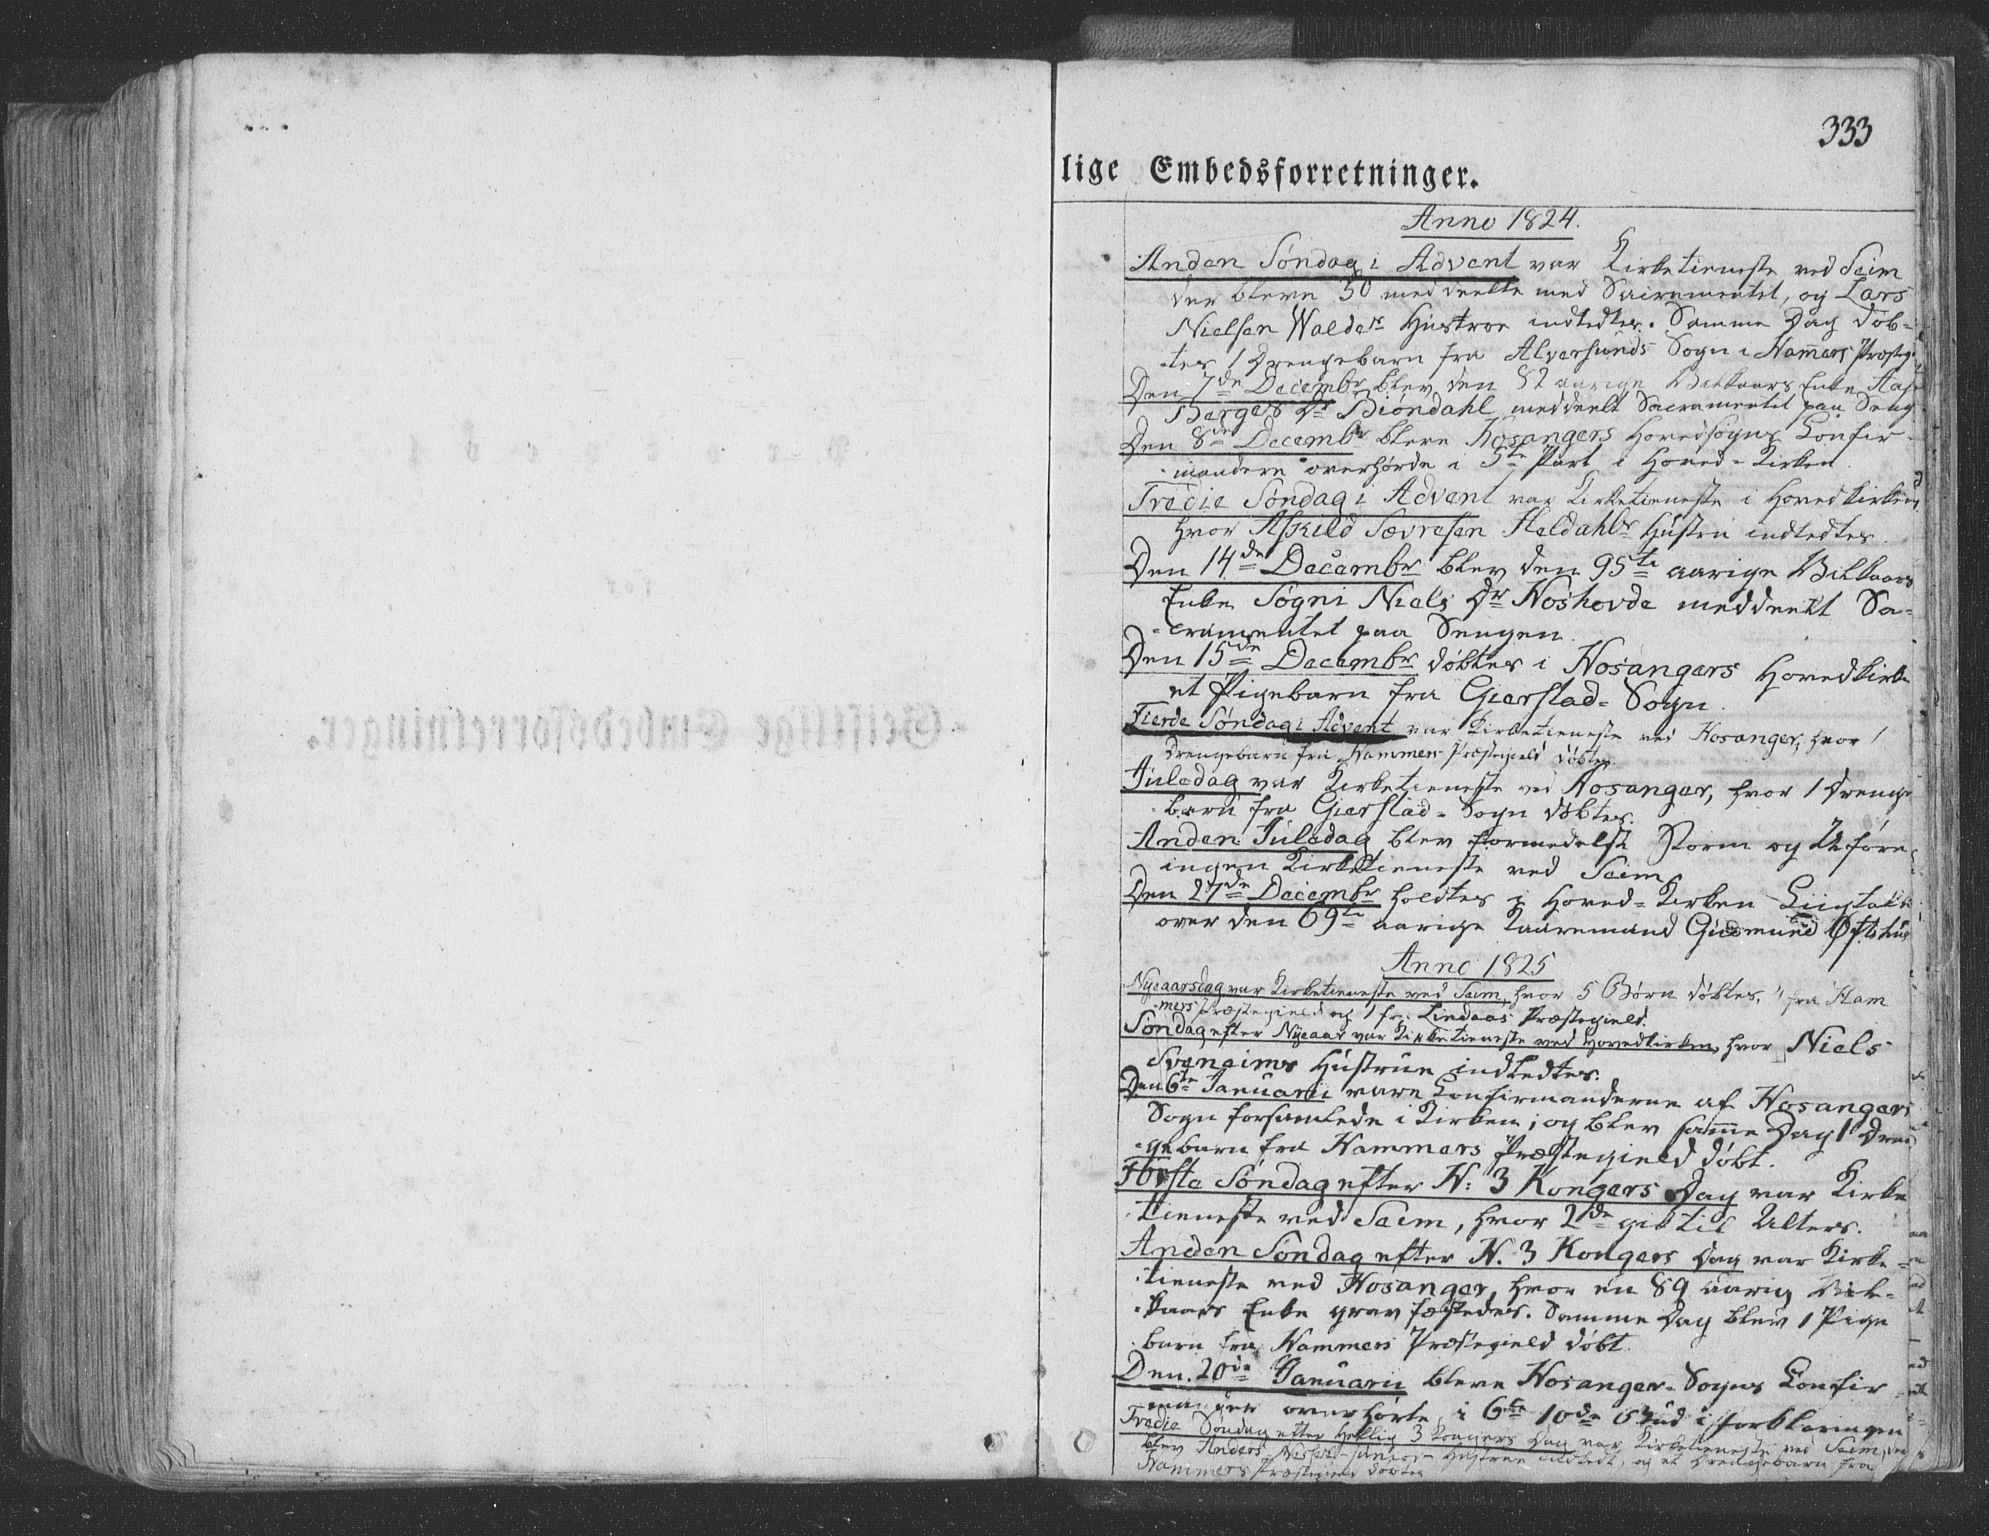 333
lige Embedsforretninger.
Anno 1824.
Anden Søndag i Advent var Kirketieneste ved Seim
der bleve 50 meddeelte med Sacramentet, og Lars
Nielsen Walders Hustroe indledtes. Samme Dag døb-
tes 1 Drengebarn fra Alversunds Sogn i Hamers Præsteg
Den 7de Decembr blev den 82 aarige Vilkaars Enke
Børges Dr Biöndahl meddeelt Sacramentet paa Seng
Den 8de Decembr bleve Hosangers Hovedsogns Confir-
mandere overhørde i 5te Part i Hoved-Kirken.
Tredie Søndag i Advent var Kirketieneste i Hovedkirken,
hvor Askild Sævresen Heldahls Hustru indledtes.
Den 14de Decembr blev den 95te aarige Vilkaars
Enke Søgni Niels Dr Hoshovde meddeelt Sa-
cramentet paa Sengen.
Den 15de Decembr døbtes i Hosangers Hovedkirke
et Pigebarn fra Gierstad-Sogn.
Fierde Søndag i Advent var Kirketieneste ved Hosanger, hvor 1
Drengebarn fra Hammer Præstegield døbtes.
Juledag var Kirketieneste ved Hosanger, hvor 1 Drenge
barn fra Gierstad-Sogn døbtes.
Anden Juledag blev formedelst Storm og Uføre
ingen Kirketieneste ved Seim
Den 27de Decembr holdtes i Hoved-Kirken Liigtale
over den 69te aarige Kaaremand Gudmund
Anno 1825
Nyeaarsdag var Kirketieneste ved Seim, hvor 5 Børn døbtes, fra Ham
mers Præstegield og 1 fra Lindaas Præstegield.
Søndag efter Nyeaar var Kirketieneste ved Hovedkirken, hvor Niels
Sveneims Hustrue indledtes.
Den 6te Januarii vare Confirmanderne af Hosangers
Sogn forsamlede i Kirken, og blev samme Dag 1 Dren
gebarn fra Hammers Præstegield døbt.
Første Søndag efter H: 3 Kongers Dag var Kirke
tieneste ved Seim, hvor 2de gik til Alters.
Anden Søndag efter H. 3 Kongers Dag var Kirke-
tieneste ved Hosanger, hvor en 89 aarig Vil-
kaars Enke grav fæstedes. Samme Dag blev 1 Pige
barn fra Hammers Præstegield døbt.
Den 20de Januarii bleve Hosanger-Sogns Confir
overhørte i 6te 10de Bud i Forklaringen
Tredie Søndag efter Hellig 3 Kongers Dag var Kirketieneste ved Seim, der
blev Anders Hustrue indledt, og et Drengebarn fra
Hammers Præstegield døbtes
Geistlige Embedsforretninger.